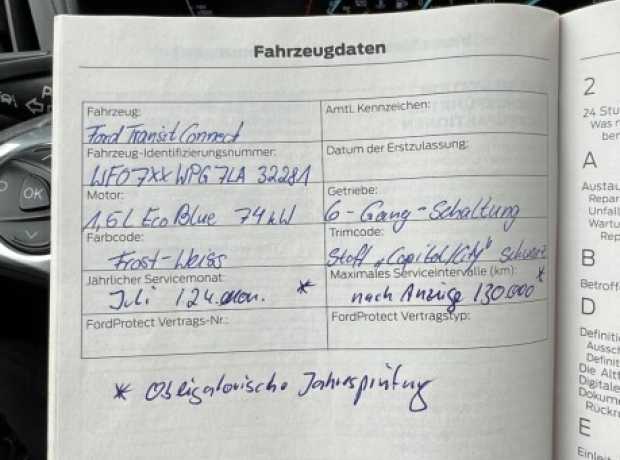 Fahrzeugdaten
Fahrzeug: Amtl. Kennzeichen:
Ford Transit Connect
Fahrzeug-Identifizierungsnummer: Datum der Erstzulassung:
WF07XXWPG7LA 32281
Motor: Getriebe:
1,5L EcoBlue 74kW 6-Gang-Schaltung
Farbcode: Trimcode:
Frost-Weiss Stoff "Capitol/City" Schwarz
Jährlicher Servicemonat: Maximales Serviceintervalle (km):
Juli / 24.mon. * nach Anzeige 130.000 *
FordProtect Vertrags-Nr.: FordProtect Vertragstyp:
* Obligatorische Jahresprüfung
2
24 Stu
Was
ber
A
Austau
Repar
Unfall
Wartu
Rep
B
Betroff
D
Definiti
Aussc
Definit
Die Alt
Digitale
Dokum
Rückn
E
Einlei
OK